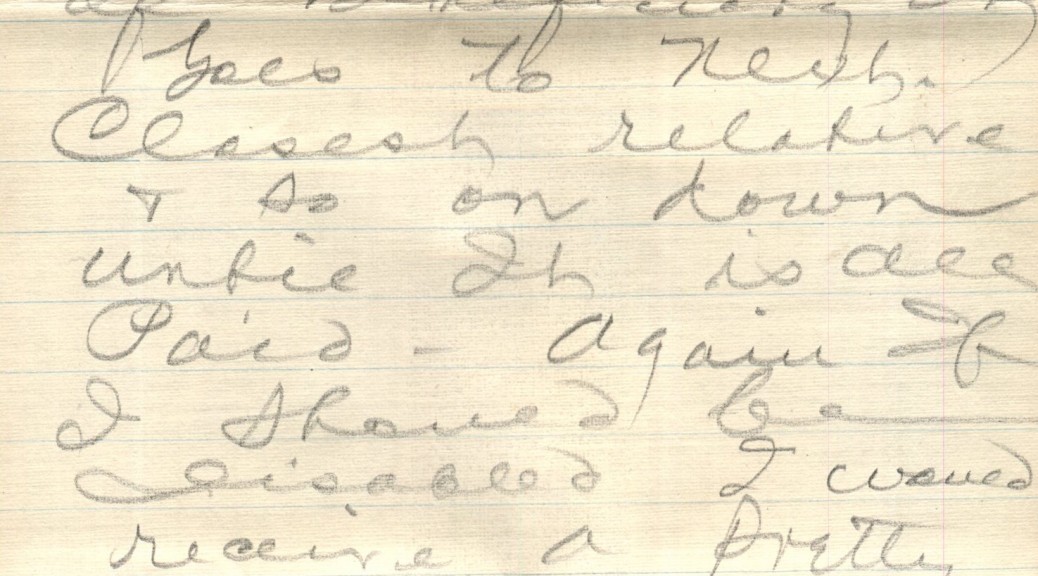 Goes to Next
Closest relative
+ so on down
until It is all
Paid - Again If
I should be
Disabled I would
receive a Pretty